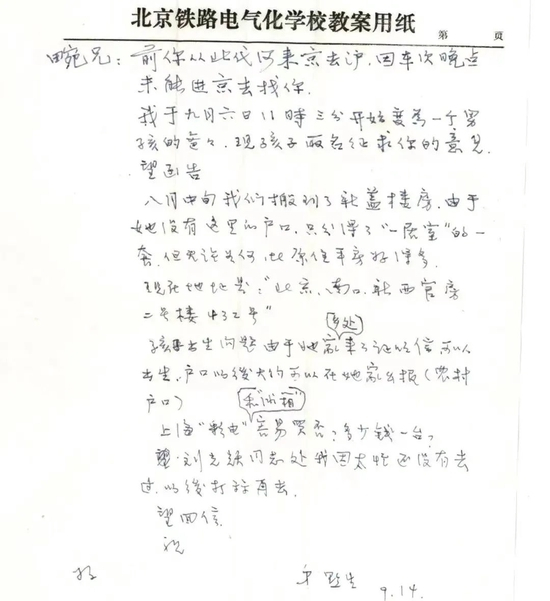 北京铁路电气化学校教案用纸
第 页
宛兄：前你从北代河来京去沪，因车次晚点
未能进京去找你。
我于九月六日11時三分开始变为一个男
孩的爸々，现孩子取名征求你的意见
望函告
八月中旬我们搬到了新盖楼房，由于
她没有这里的户口，只分得了“一居室”的一
套，但无论如何，比原住平房好得多。
现在地址是：“北京、南口、新西官房
二号楼432号”
孩子出生问题由于她家乡处来了证明信可以
出生，户口以後大约可以在她家乡报（农村
户口）
上海“彩电”和“冰箱”容易买否？多少钱一台？
刘克 同志处我因太忙还没有去
过，以後打算再去。
望回信。
祝
好
9.14.